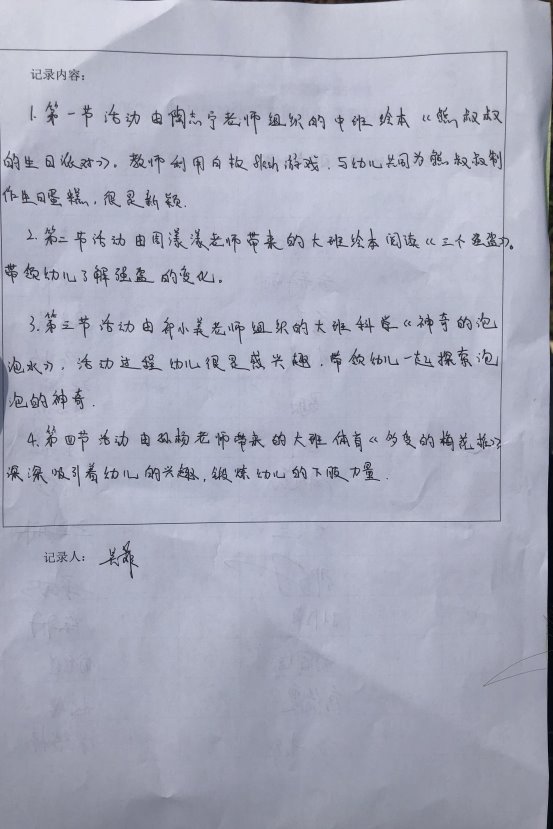 记录内容：
1. 第一节活动由陶志宁老师组织的中班绘本《熊叔叔
的生日派对》。教师利用白板 游戏，与幼儿共同为熊叔叔制
作生日蛋糕，很是新颖.
2. 第二节活动由周漾漾老师带来的大班绘本阅读《三个强盗》。
带领幼儿了解强盗的变化。
3. 第三节活动由 小美老师组织的大班科学《神奇的泡
泡水》，活动过程幼儿很是感兴趣，带领幼儿一起探索泡
泡的神奇.
4. 第四节活动由孙杨老师带来的大班体育《多变的梅花桩》
深深吸引着幼儿的兴趣，锻炼幼儿的下肢力量.
记录人：